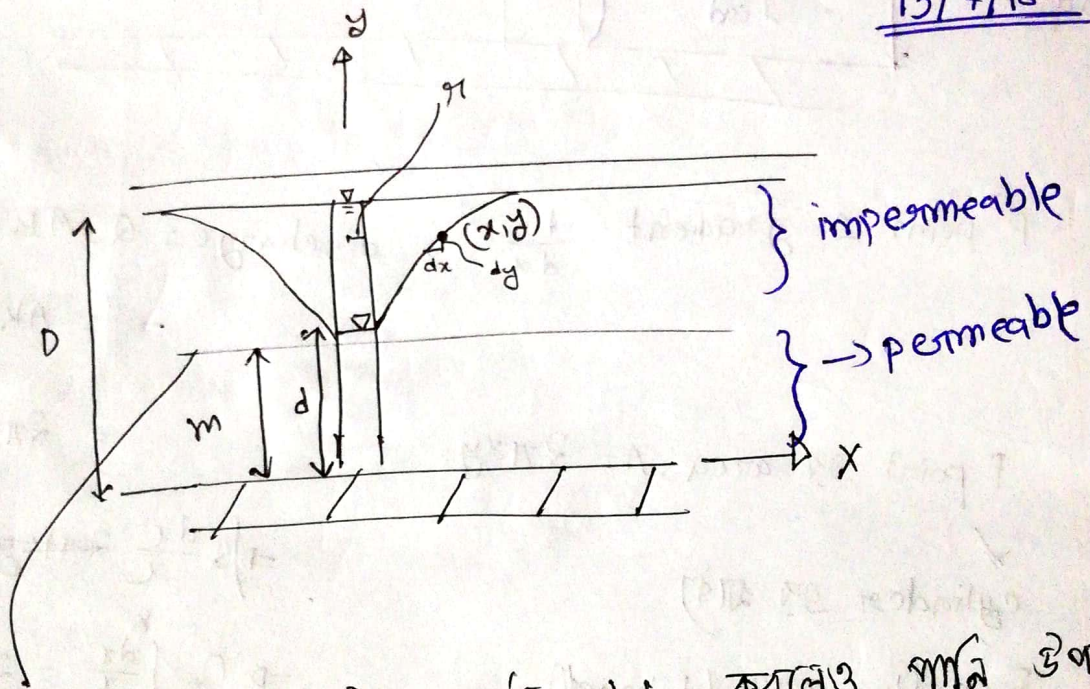 y
r
(x,y)
dx
dy
} impermeable
} → permeable
D
m
d
X
পানি